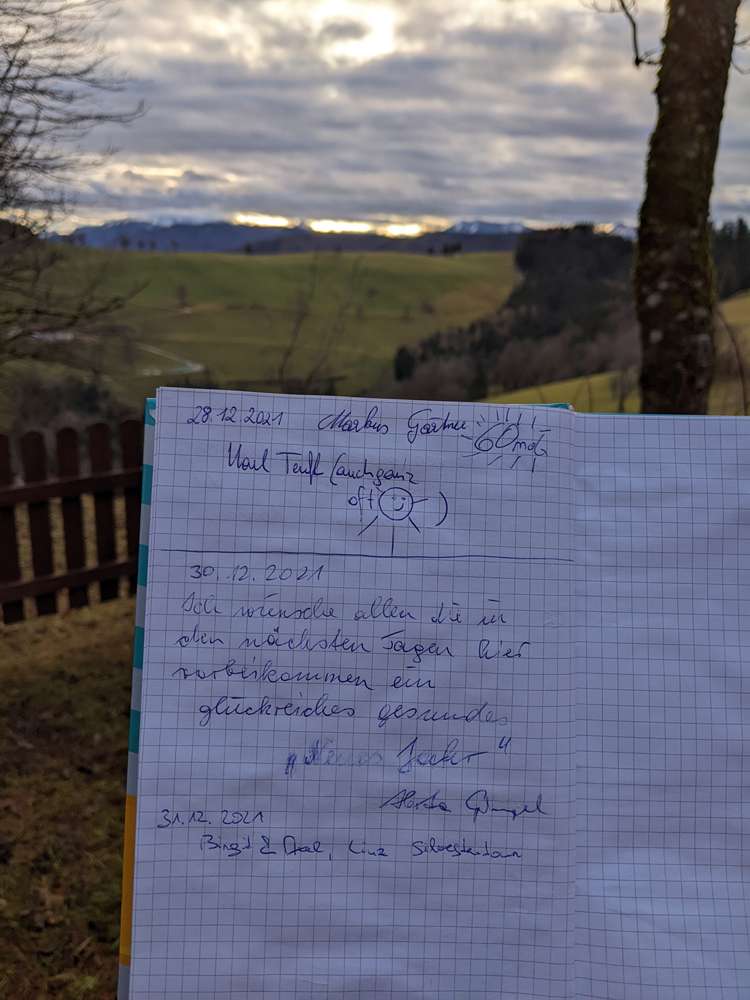 28.12 2021 Markus Gärtner 60 mal
Karl (auch ganz
oft )
30.12.2021
Ich wünsche allen die in
den nächsten Tagen hier
vorbeikommen ein
glückreiches gesundes
„Neues Jahr"
31.12.2021
Birgit & , Linz